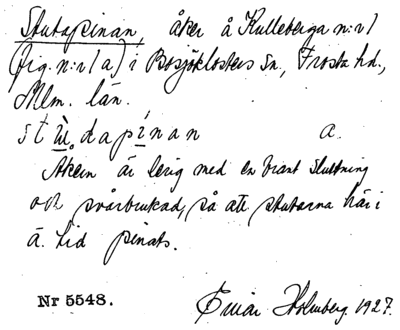 Stutapinan, åker å Kulleberga n:r 1
(fig. n:r 1 a) i Bosjöklosters sn., Frosta hd.,
Mlm. län.
stù̱dapi̱nan a.
Åkern är lerig med en brant sluttning
och svårbrukad, så att stutarna här i
ä. tid pinats.
Nr 5548. Einar Holmberg 1927.